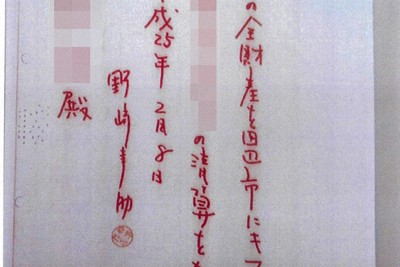 の全財産を田辺市にキフ
の清算を
成25年2月8日
野崎幸助
殿